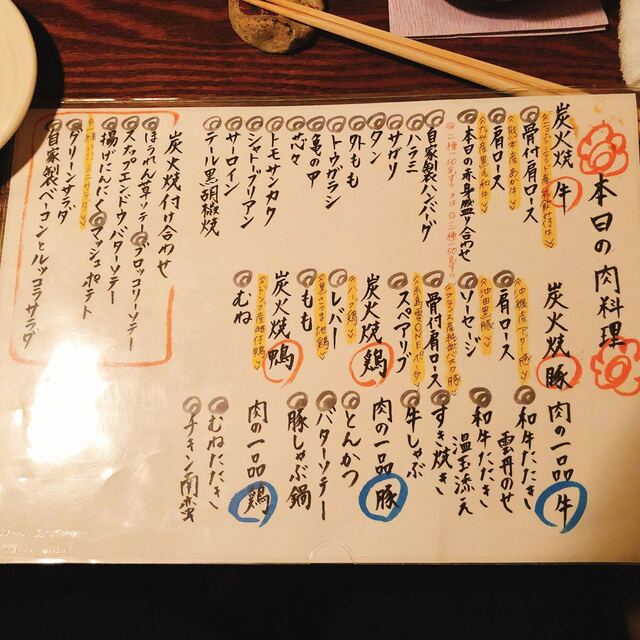 本日の肉料理
炭火焼 牛
骨付肩ロース
<熊本産あか牛>
肩ロース
本日の赤身盛り合わせ
自家製ハンバーグ
ハラミ
サガリ
タン
外もも
トウガラシ
亀の甲
芯々
トモサンカク
シャトーブリアン
サーロイン
テール黒胡椒焼
炭火焼付け合わせ
ほうれん草ソテー
ブロッコリーソテー
スナップエンドウバターソテー
揚げにんにく
マッシュポテト
グリーンサラダ
自家製ベーコンとルッコラサラダ
炭火焼 豚
<沖縄産アグー豚>
肩ロース
<池田黒豚>
ソーセージ
骨付肩ロース
スペアリブ
炭火焼 鶏
<ハーブ鶏>
レバー
<黒さつま地鶏>
もも
炭火焼 鴨
むね
肉の一品 牛
和牛たたき
雲丹のせ
和牛たたき
温玉添え
すき焼き
牛しゃぶ
肉の一品 豚
とんかつ
バターソテー
豚しゃぶ鍋
肉の一品 鶏
むねたたき
チキン南蛮